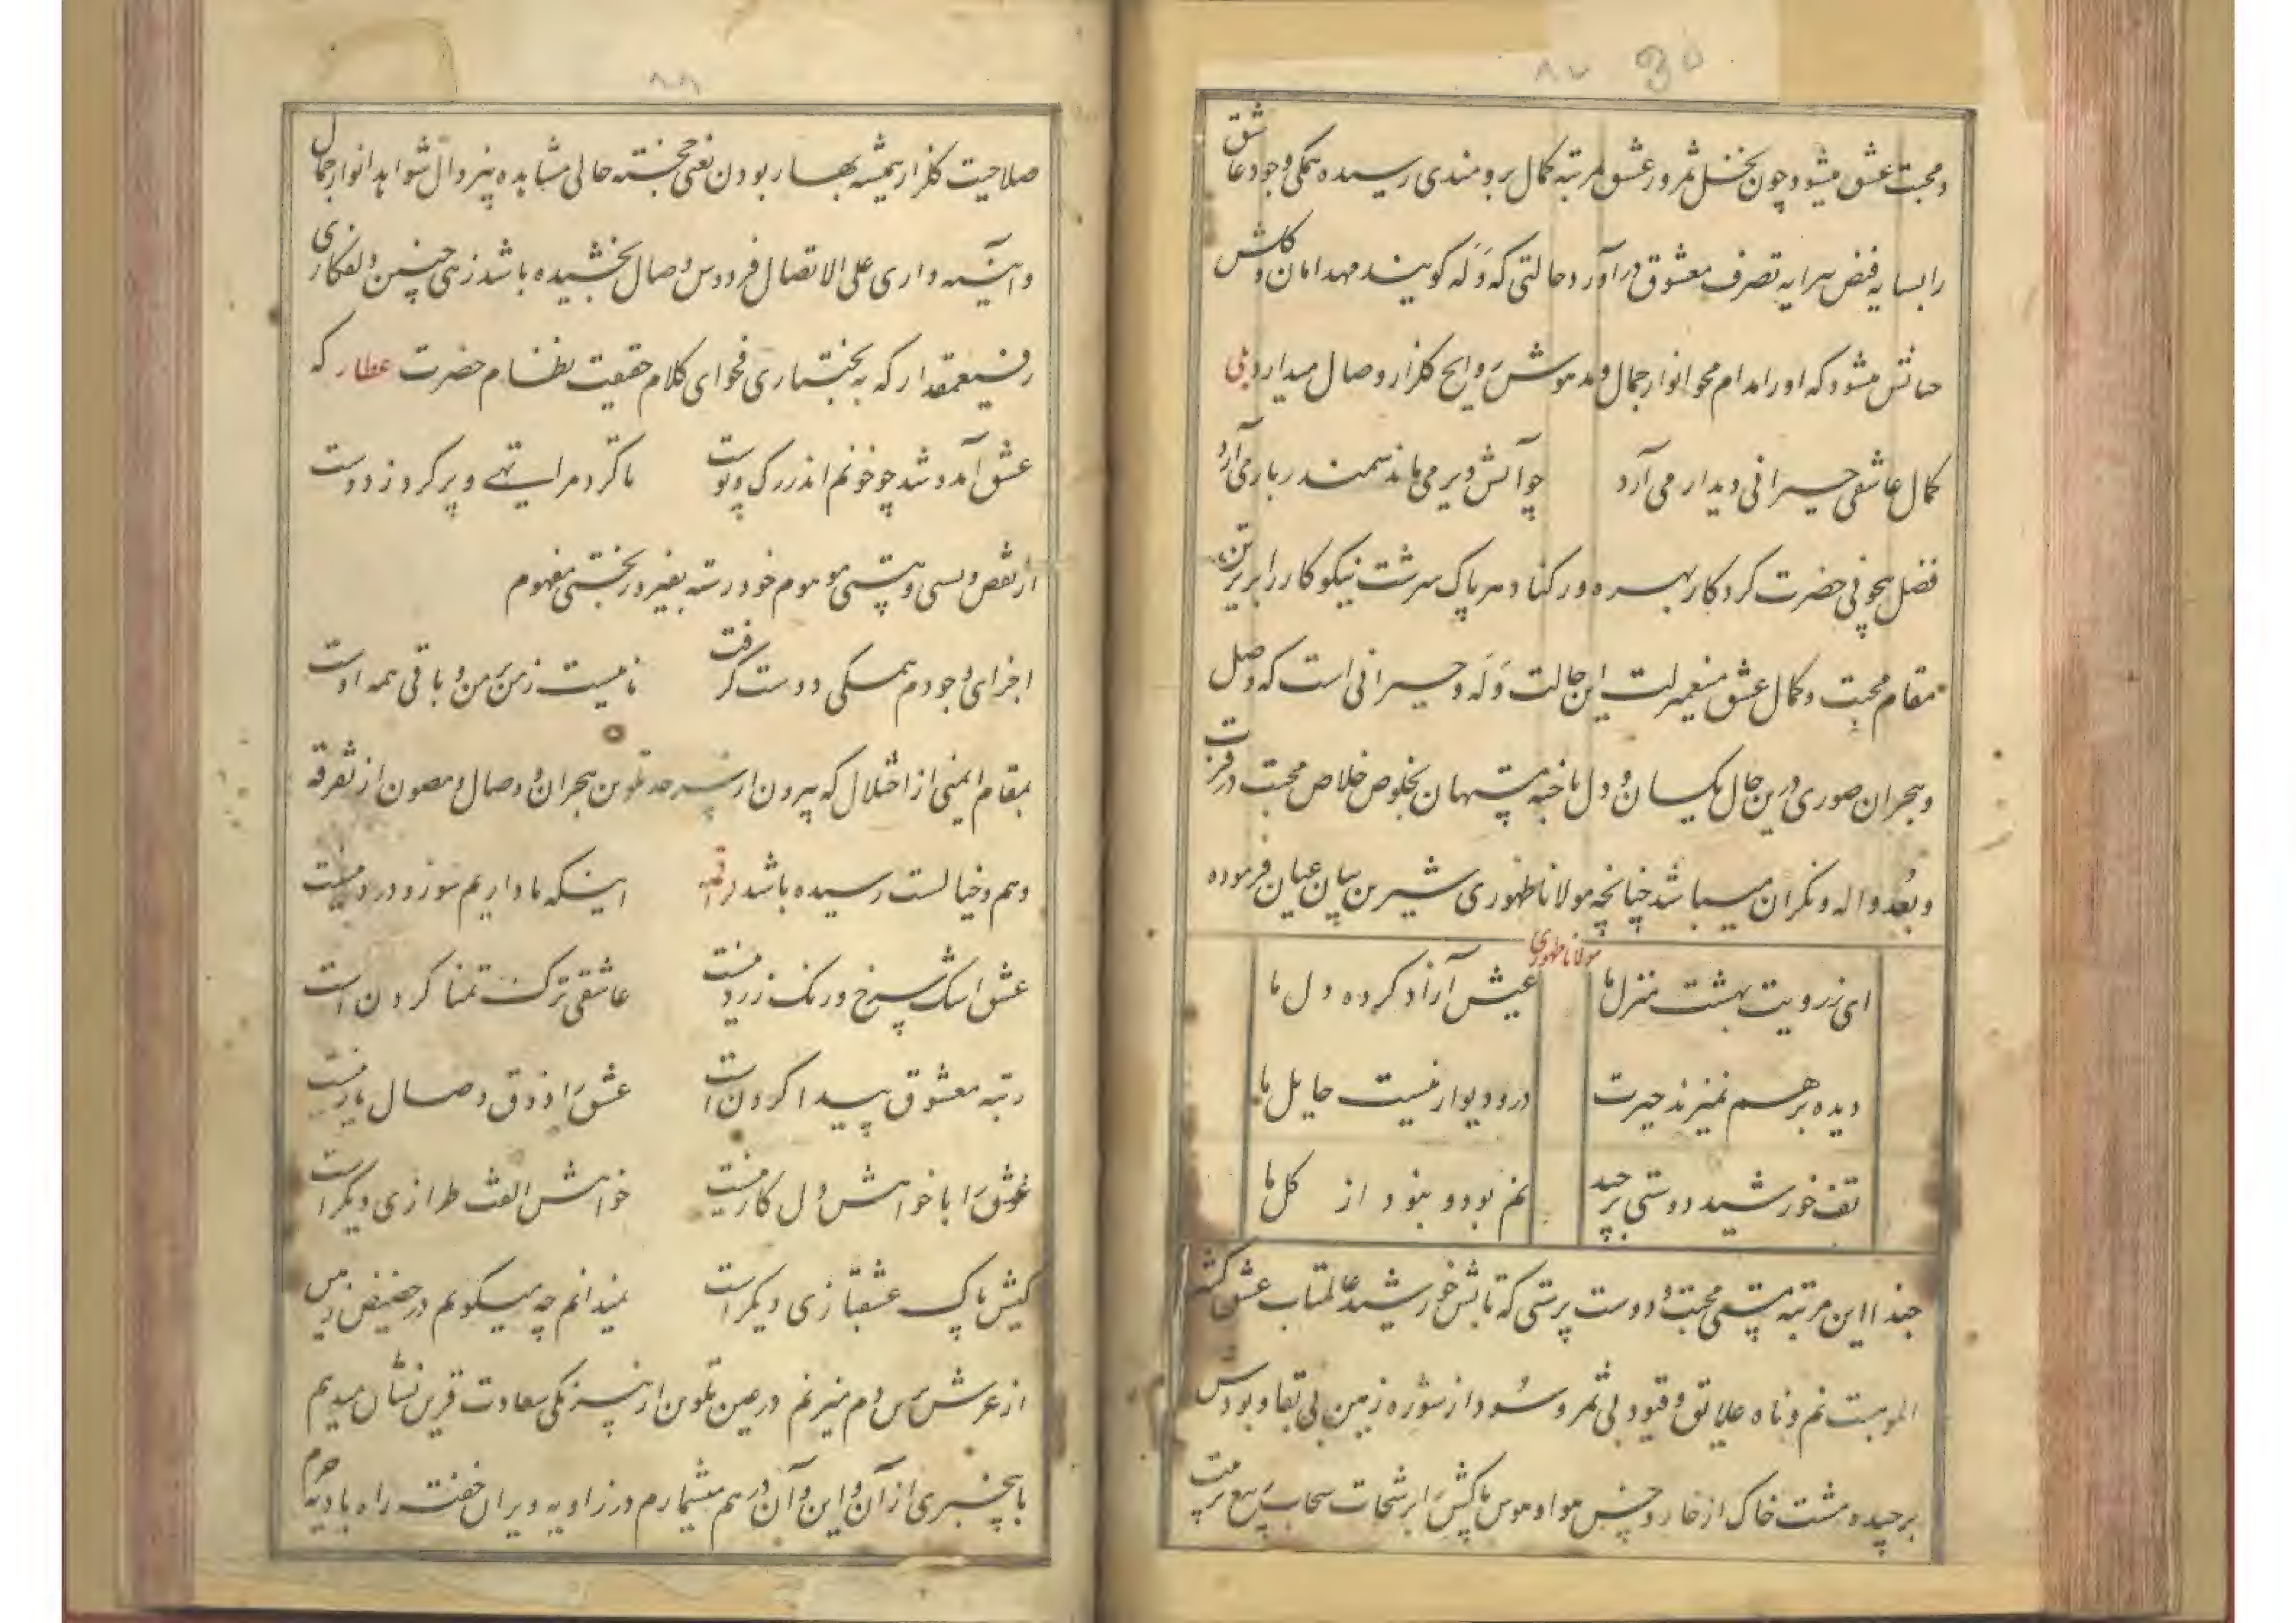 ۸۷ ۳۵
و محبت عشق میشود چون نخل ثمرور عشق بمرتبه کمال برومندی رسیده همگی وجود عاشق
را بسایه فیض سرایه تصرف معشوق درآورد حالتی که وَلَه کویند مهد امان و کلشن
حیاتش میشود که او را مدام محو انوار جمال و مدهوش روایح کلزار وصال میدارد
کمال عاشقی حیرانی دیدار می‌آرد
چو آتش دیر می‌ماند سمندر بار می‌آرد
فضل بیچونی حضرت کردکار بهره ور کناد هر پاک سرشت نیکوکار را برترین
مقام محبت و کمال عشق این حالت وَلَه و حیرانی است که وصل
و هجران صوری درین حال یکسان و دل باخته پنهان بخلوص خلاص محبت در قرب
و بُعد واله و نکران میباشد چنانچه مولانا ظهوری شیرین بیان عیان فرموده
مولانا ظهوری
ای ز رویت بهشت منزل ما
عیش آزاد کرده دل ما
دیده بر هم نمیزند حیرت
در و دیوار نیست حایل ما
تف خورشید دوستی برچید
نم بود و نبود از کل ما
حبذا این مرتبه محبت و دوست پرستی که تابش خورشید عالمتاب عشق کشته
الوهیت نم و علایق و قیود بی ثمر و سود از شوره زمین بی بقا و بودش
برچیده مشت خاک از خار و خس هوا و هوس پاکش را برشحات سحاب
۸۸
صلاحیت کلزار همیشه بهار بودن یعنی خجسته حالی مشاهده شواهد انوار جمال
و آیینه داری علی الاتصال فردوس وصال بخشیده باشد زهی چنین دلفکاری
رفیع‌مقدار که به بختیاری فحوای کلام حقیقت نظام حضرت عطار که
عشق آمد و شد چو خونم اندر رک و پوست
تا کرد مرا تهی و پر کرد ز دوست
از نقص و هستی موهوم خود رسته بفیروز بختی مفهوم
اجزای وجودم همکی دوست کرفت
نامیست ز من بر من و باقی همه اوست
بمقام ایمنی از اختلال که بیرون از سرحد تلوین هجران و وصال و مصون از تفرقه
وهم و خیالست رسیده باشد
اینکه ما داریم سوز و درد نیست
عشق اشک سرخ و رنک زرد نیست
عاشقی ترک تمنا کردن است
رتبه معشوق پیدا کردن است
عشق را ذوق وصال یار نیست
عشق را با خواهش دل کار نیست
خواهش الفت طرازی دیکر است
کیش پاک عشقبازی دیکر است
نمیدانم چه میکویم در حضیض زمین
از عرش برین دم میزنم در عین تلوین از سعادت قرین نشان میدهم
با بیخبری از آن و این و آن در هم میشمارم در زاویه ویران خفته راه بادیه حرم